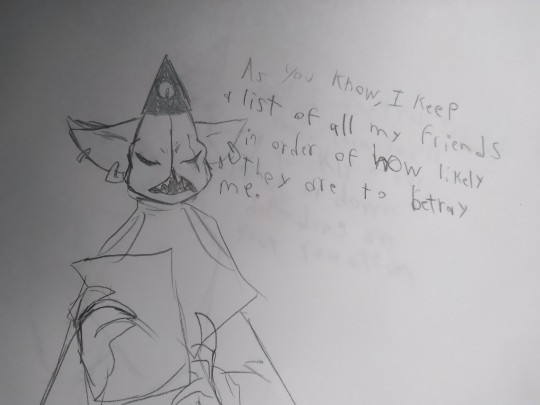 As you know, I keep
a list of all my friends
in order of how likely
they are to betray
me.